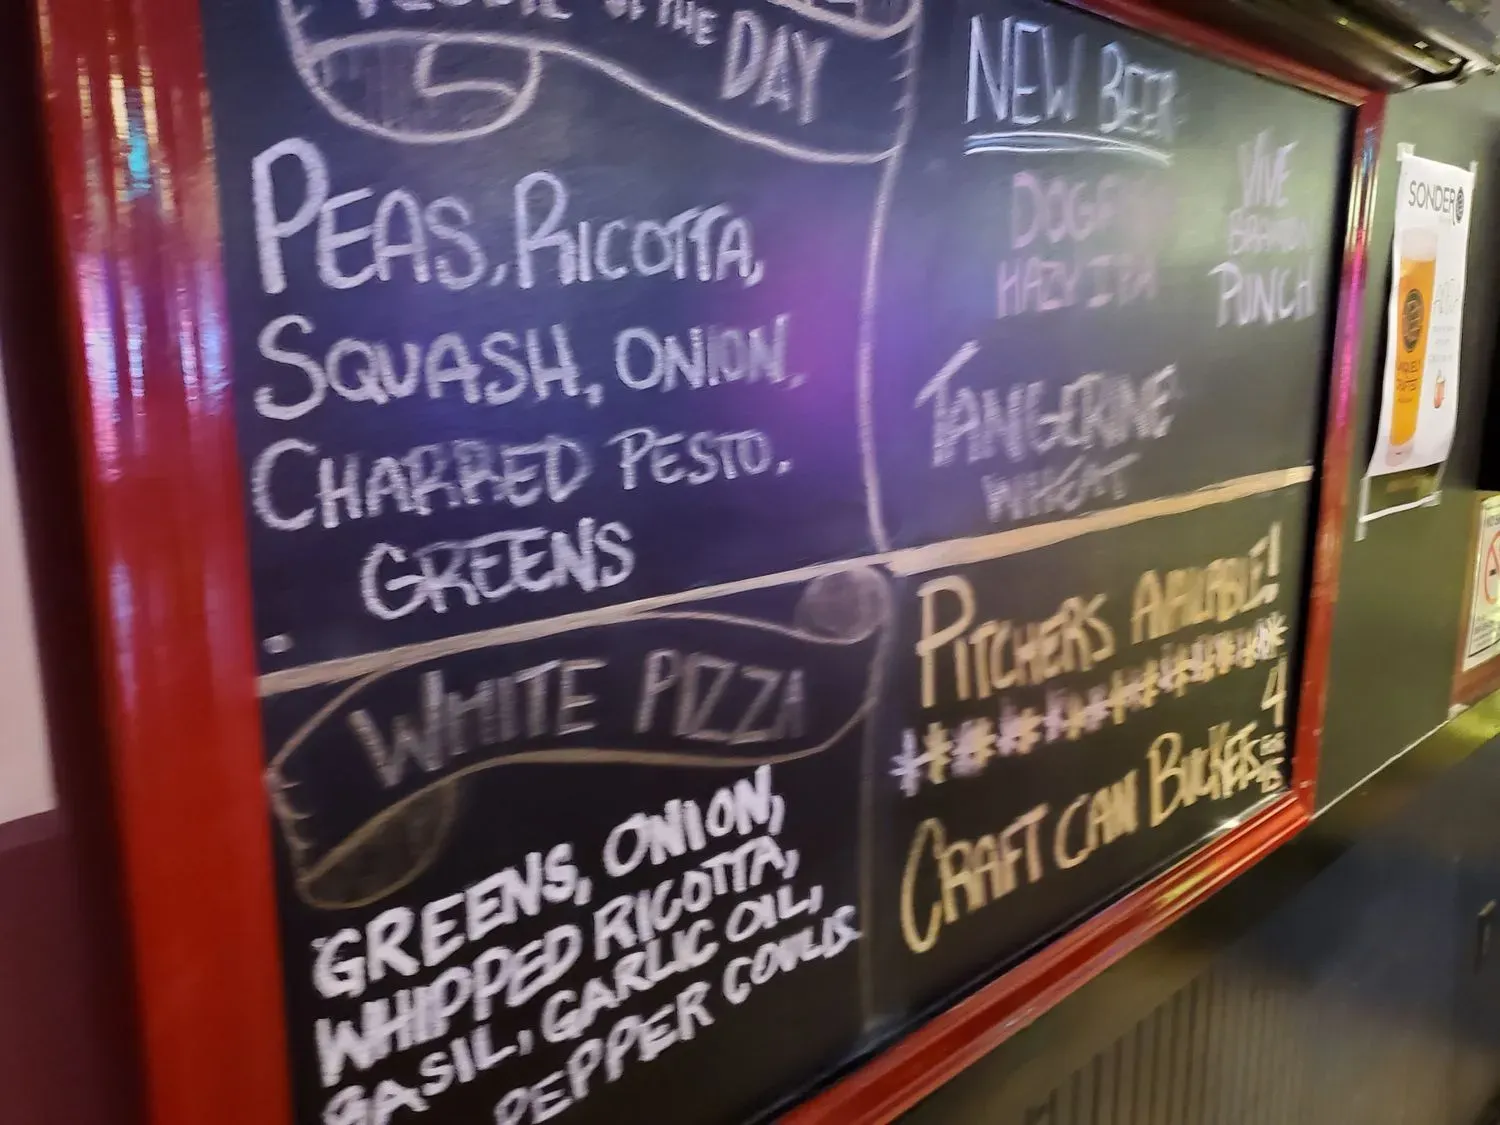 OF THE DAY
PEAS, RICOTTA,
SQUASH, ONION,
CHARRED PESTO,
GREENS
WHITE PIZZA
GREENS, ONION,
WHIPPED RICOTTA,
BASIL, GARLIC OIL,
PEPPER COULIS.
NEW BEER
HAZY IPA
VIVE
PUNCH
TANGERINE
WHEAT
PITCHERS AVAILABLE!
****************
CRAFT CAN BUCKETS 4
FOR
15
SONDER